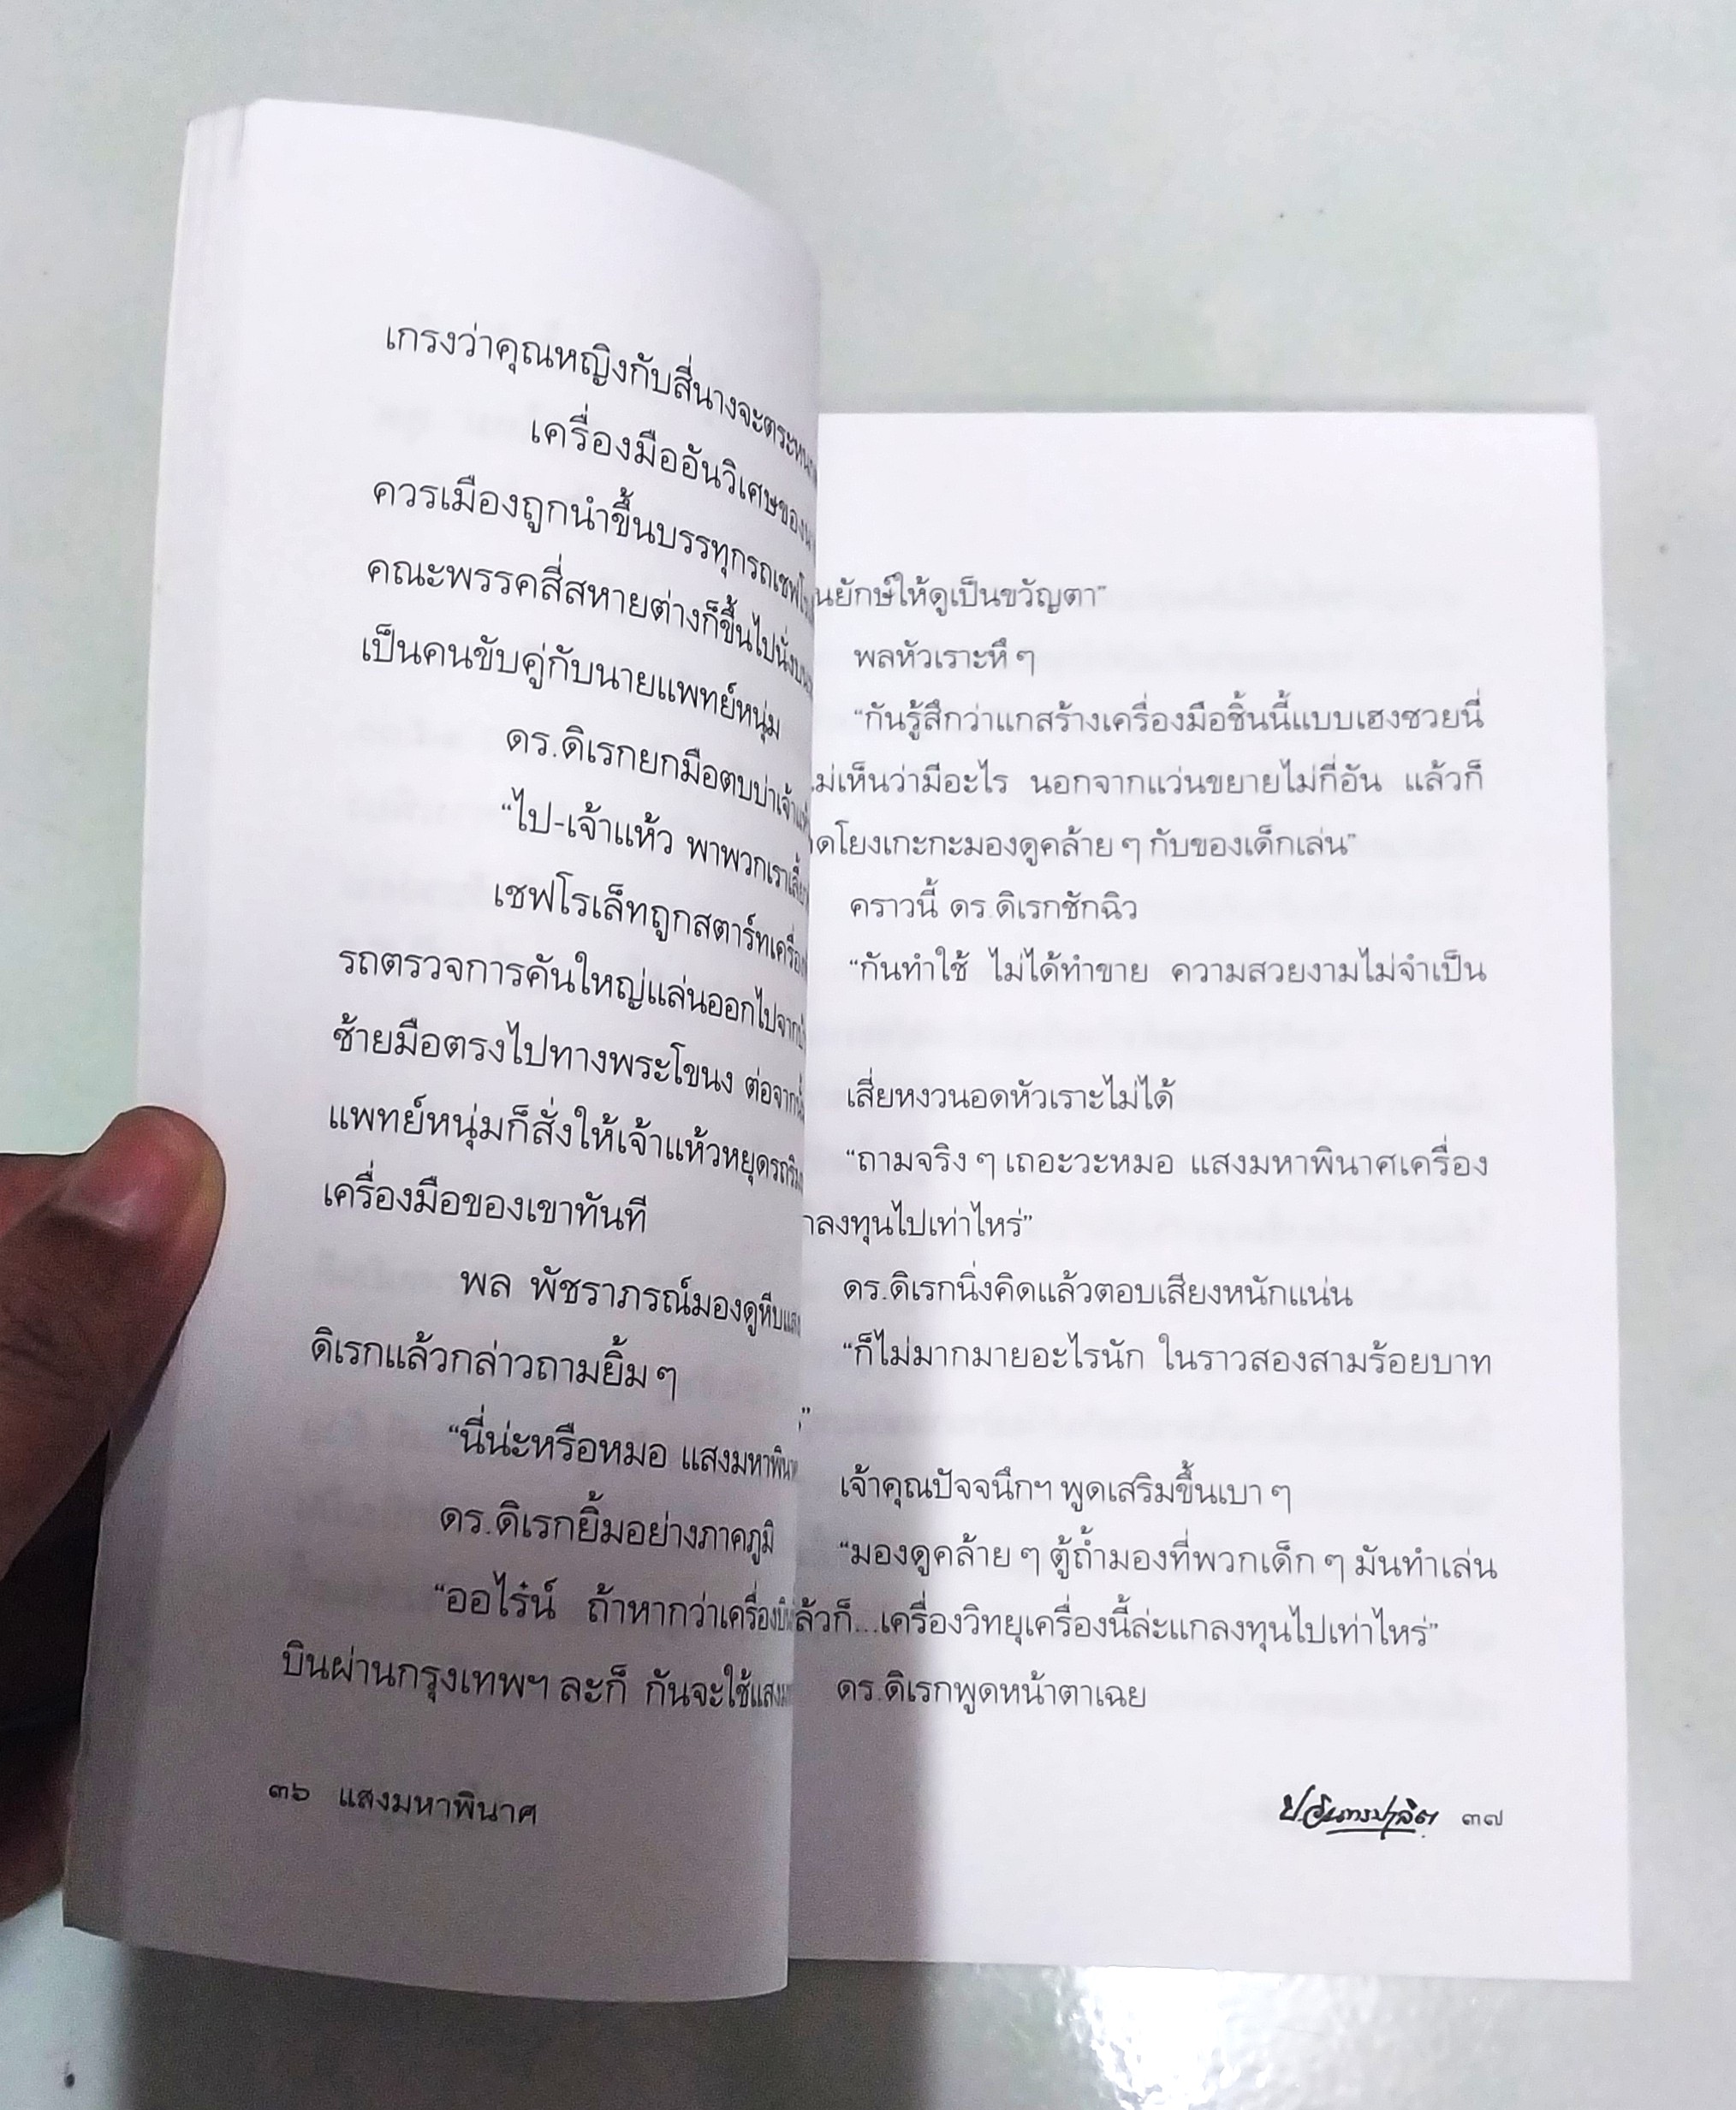 เกรงว่าคุณหญิงกับสี่นางจะตระหนก
เครื่องมืออันวิเศษของ
ควรเมืองถูกนำขึ้นบรรทุกรถเชฟโร
คณะพรรคสี่สหายต่างก็ขึ้นไปนั่งบน
เป็นคนขับคู่กับนายแพทย์หนุ่ม
ดร.ดิเรกยกมือตบบ่าเจ้าแห้ว
“ไป-เจ้าแห้ว พาพวกเรา
เชฟโรเล็ทถูกสตาร์ทเครื่อง
รถตรวจการคันใหญ่แล่นออกไปจาก
ซ้ายมือตรงไปทางพระโขนง ต่อจากนั้น
แพทย์หนุ่มก็สั่งให้เจ้าแห้วหยุดรถริม
เครื่องมือของเขาทันที
พล พัชราภรณ์มองดูหีบแสง
ดิเรกแล้วกล่าวถามยิ้ม ๆ
“นี่น่ะหรือหมอ แสงมหาพินาศ
ดร.ดิเรกยิ้มอย่างภาคภูมิ
“ออไร๋น์ ถ้าหากว่าเครื่องบิน
บินผ่านกรุงเทพฯ ละก็ กันจะใช้แสงม
๓๖ แสงมหาพินาศ
นยักษ์ให้ดูเป็นขวัญตา”
พลหัวเราะหึ ๆ
“กันรู้สึกว่าแกสร้างเครื่องมือชิ้นนี้แบบเฮงซวยนี่
ไม่เห็นว่ามีอะไร นอกจากแว่นขยายไม่กี่อัน แล้วก็
ดโยงเกะกะมองดูคล้าย ๆ กับของเด็กเล่น”
คราวนี้ ดร.ดิเรกชักฉิว
“กันทำใช้ ไม่ได้ทำขาย ความสวยงามไม่จำเป็น
เสี่ยหงวนอดหัวเราะไม่ได้
“ถามจริง ๆ เถอะวะหมอ แสงมหาพินาศเครื่อง
กลงทุนไปเท่าไหร่”
ดร.ดิเรกนิ่งคิดแล้วตอบเสียงหนักแน่น
“ก็ไม่มากมายอะไรนัก ในราวสองสามร้อยบาท
”
เจ้าคุณปัจจนึกฯ พูดเสริมขึ้นเบา ๆ
“มองดูคล้าย ๆ ตู้ถ้ำมองที่พวกเด็ก ๆ มันทำเล่น
ล้วก็...เครื่องวิทยุเครื่องนี้ล่ะแกลงทุนไปเท่าไหร่”
ดร.ดิเรกพูดหน้าตาเฉย
ป.อินทรปาลิต ๓๗